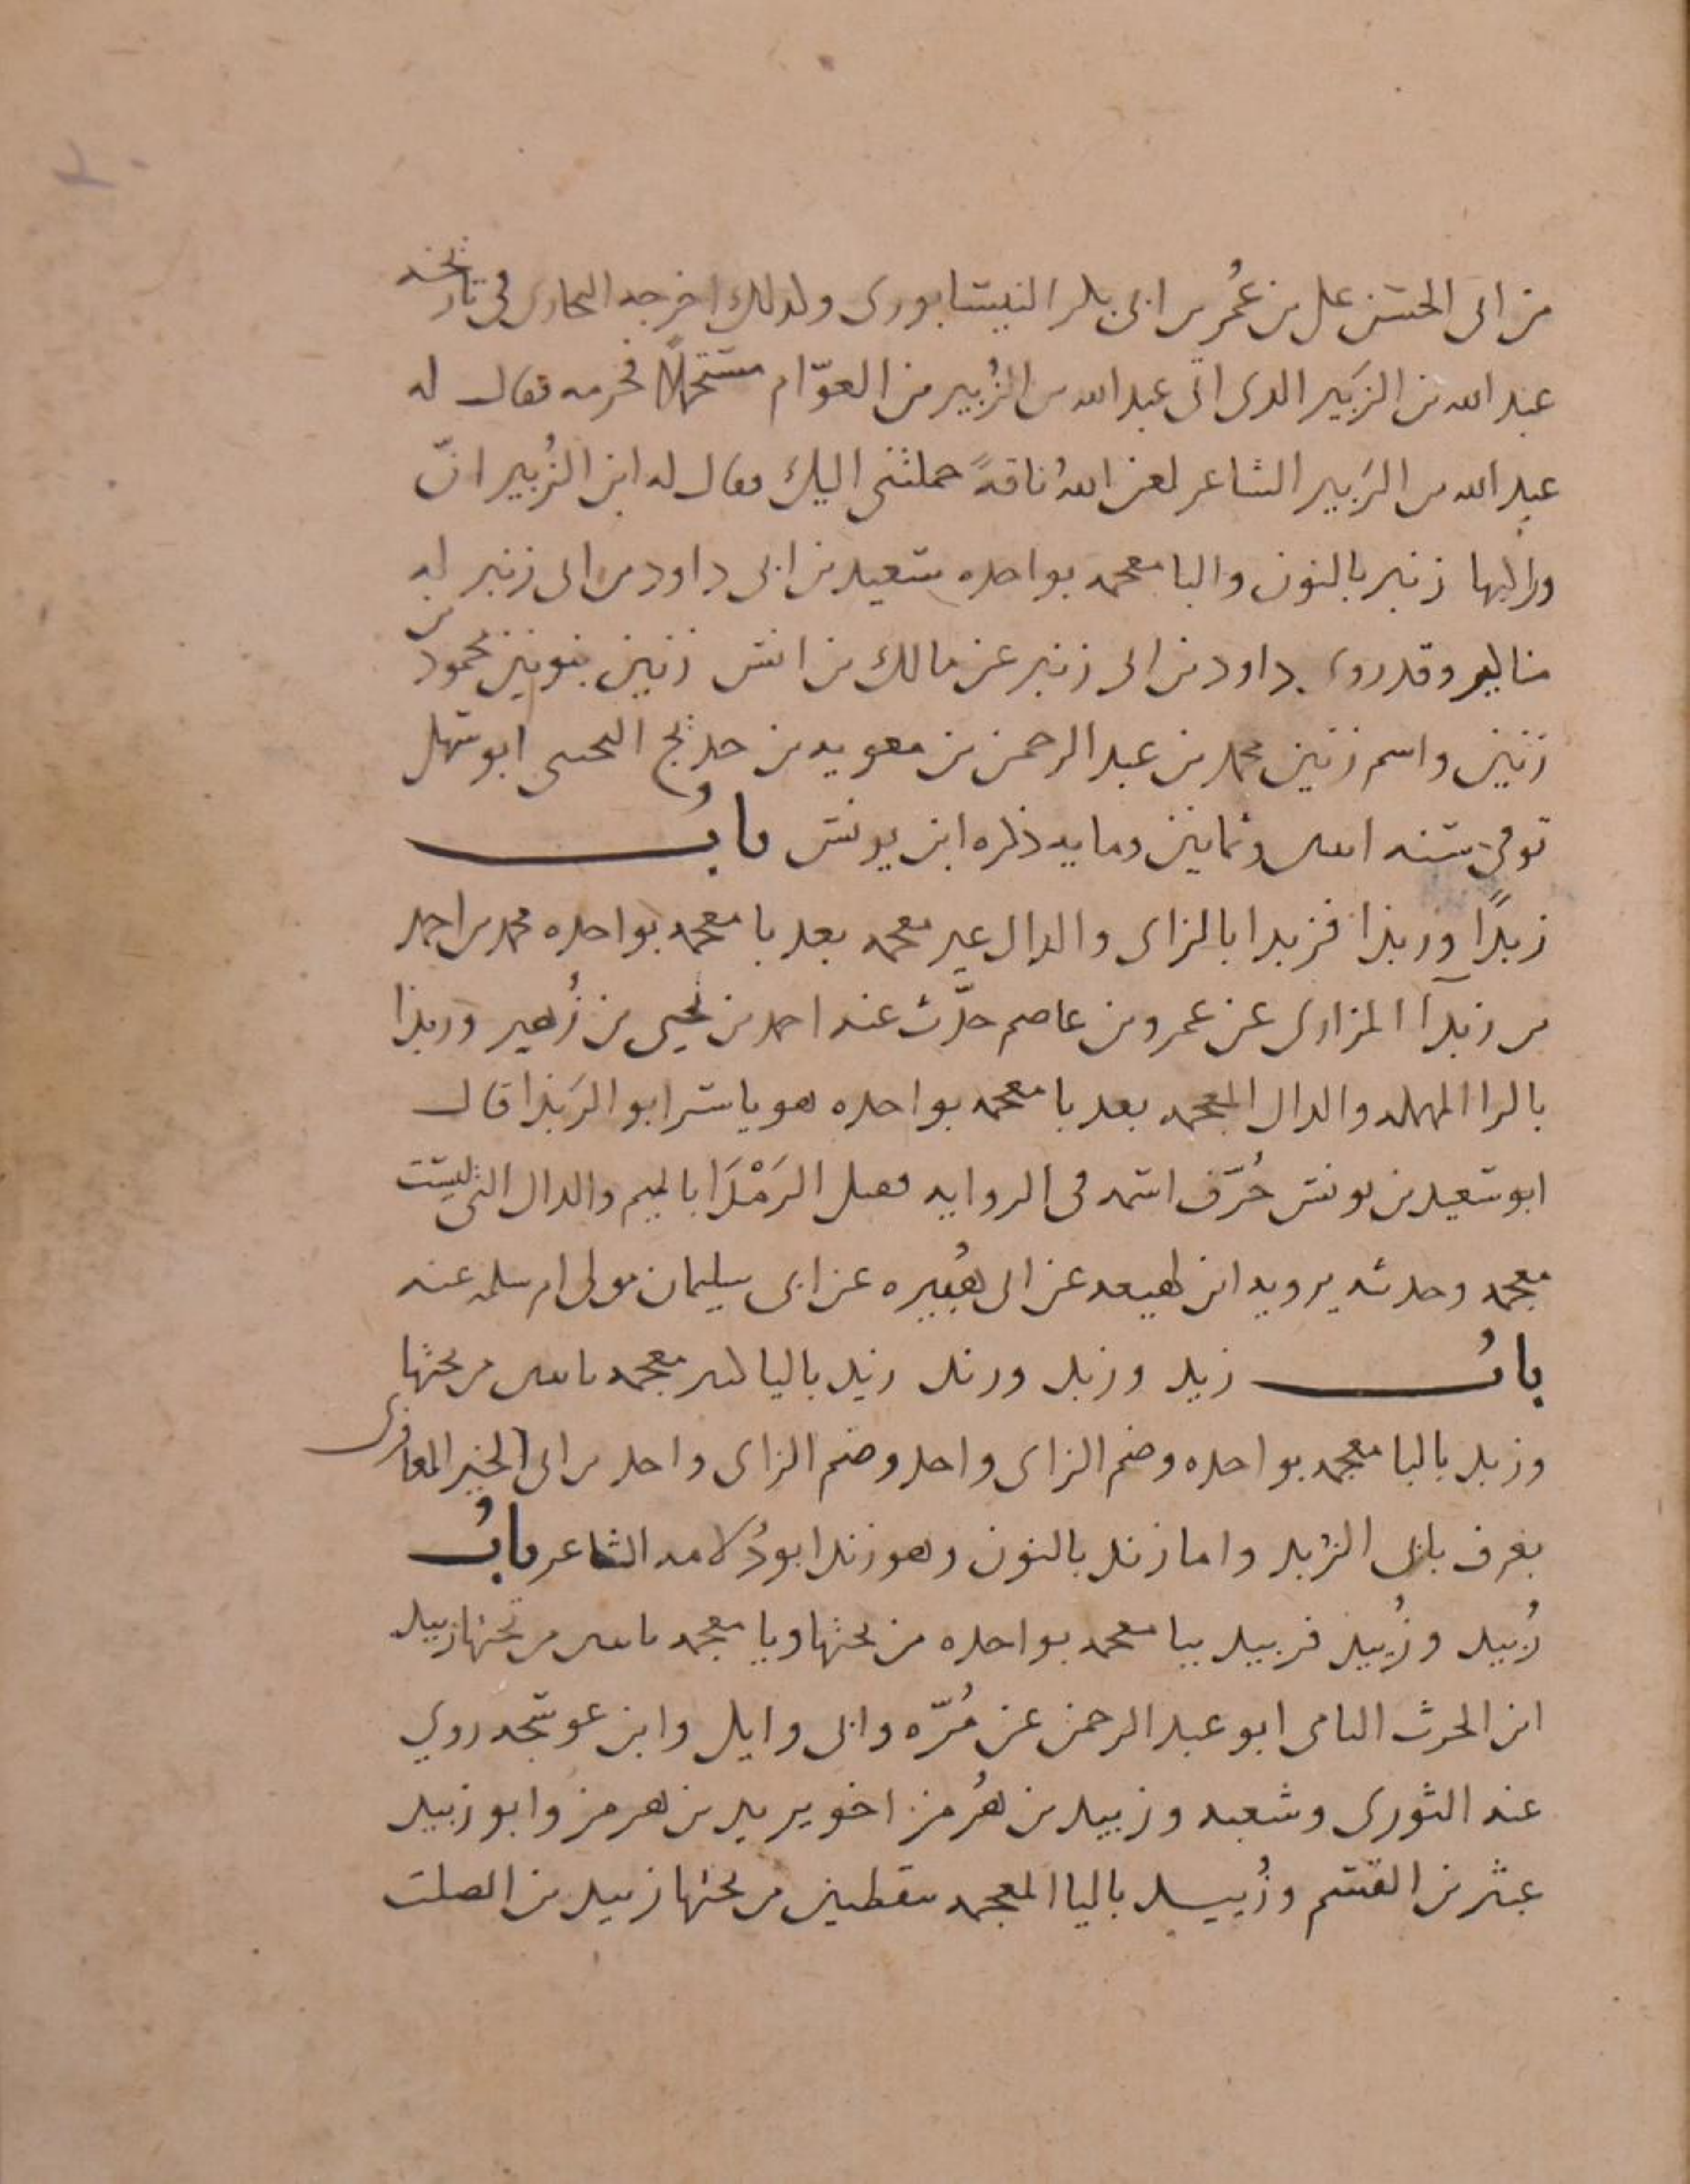 من ابى الحسن على بن عُمر بن ابى بكر النيسابورى وكذلك اخرجه البخارى فى تاريخه
عبد الله بن الزَبير الذى اتى عبد الله بن الزُبير بن العوّام مستحملًا فحرمه فقال له
عبد الله بن الزَبير الشاعر لعن اللهُ ناقةً حملتنى اليك فقال له ابن الزُبير انّ
وراكبها زنبر بالنون والبا معجمه بواحده سعيد بن ابى داود بن ابى زنبر له
مناكير وقد روى داود بن ابى زنبر عن مالك بن انس زنين بنونين محمود بن
زنين واسم زنين محمد بن عبد الرحمن بن معويه بن حديج التجيبى ابو سهل
توفى سنه اثنين وثمانين ومايه ذكره ابن يونس بابُ
زبدًا وربذا فزبدا بالزاى والدال غير معجمه بعد با معجمه بواحده محمد بن احمد
بن زبدآ المزارى عن عمرو بن عاصم حدّث عنه احمد بن يحيى بن زُهير وربذا
بالرا المهمله والذال المعجمه بعد با معجمه بواحده هو ياسر ابو الرَبذا قال
ابو سعيد بن يونس حُرّف اسمه فى الروايه فقيل الرَمْدَا بالميم والدال التى ليست
معجمه وحديثه يرويه ابن لهيعه عن ابى هُبيره عن ابى سليمان مولى ام سلمه عنه
بابُ زيد وزبد وزند زيد باليا كثير معجمه باثنين من تحتها
وزبد بالبا معجمه بواحده وضم الزاى واحد وضم الزاى واحد بن ابى الخير المعافرى
يعرف بابى الزبد واما زند بالنون وهو زند ابو دُلامه الشاعر بابُ
زُبيد وزُييد فزبيد ببا معجمه بواحده من تحتها ويا معجمه باثنين من تحتها زبيد
ابن الحرث اليامى ابو عبد الرحمن عن مُرّه وابى وايل وابن عوسجه روى
عنه الثورى وشعبه وزبيد بن هُرمز اخو يزيد بن هرمز وابو زبيد
عبثر بن القسم وزُييد باليا المعجمه بنقطتين من تحتها زييد بن الصلت